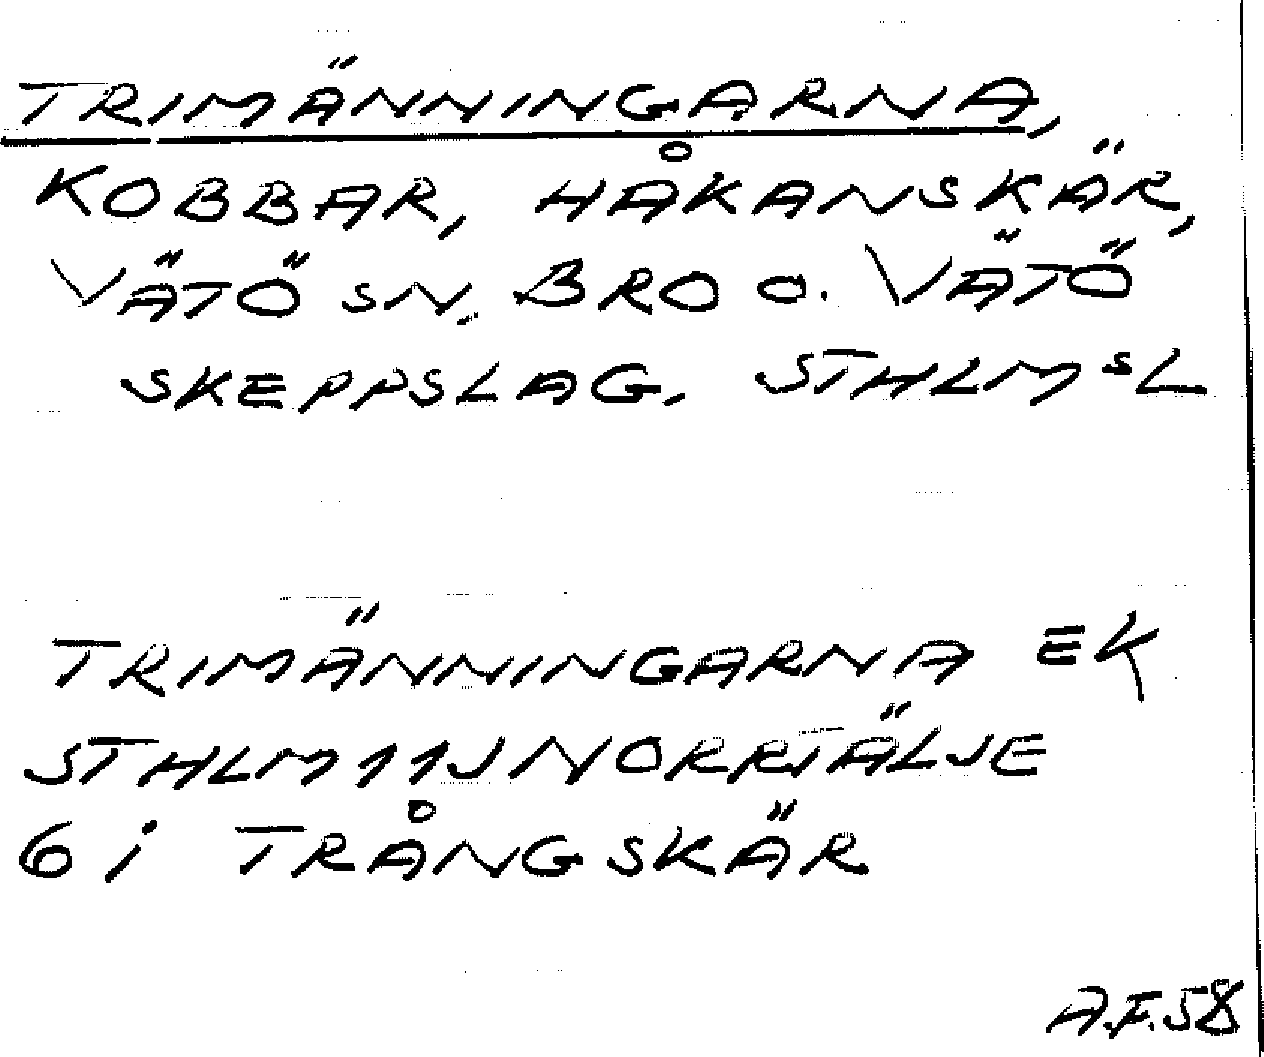 TRIMÄNNINGARNA,
KOBBAR, HÅKANSKÄR,
VÄTÖ SN, BRO O. VÄTÖ
SKEPPSLAG, STHLMSL
TRIMÄNNINGARNA EK
STHLM 11J NORRTÄLJE
6 i TRÅNGSKÄR
A.F.58